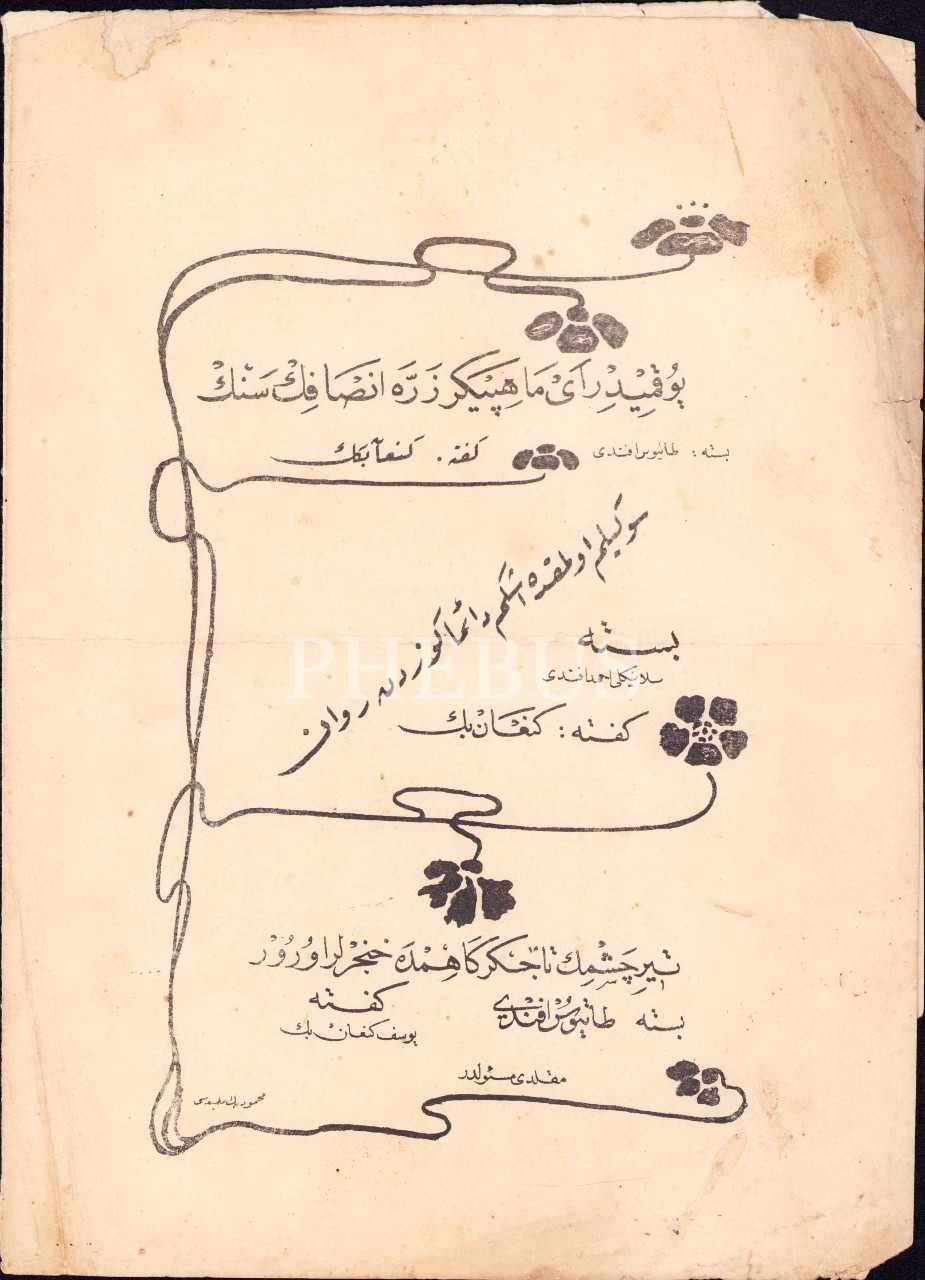 يُوقْمِيْدِرْ اَیْ مَاهِپَيْكَر ذَرَّه اِنْصَافِكْ سَنْكْ
بسته : طاتيوس افندی
كفته . كنعان بك
سوكيلم اولمقده اشكم دائما كوزدن روان
بسته
سلانيكلی احمد افندی
كفته : كنعان بك
PHEBUS
تيرِ چَشْمِك تا جكركاهمده خنجرلر اُورُوْر
بسته طاتيوس افندی
كفته
يوسف كنعان بك
مقلدی مسئولدر